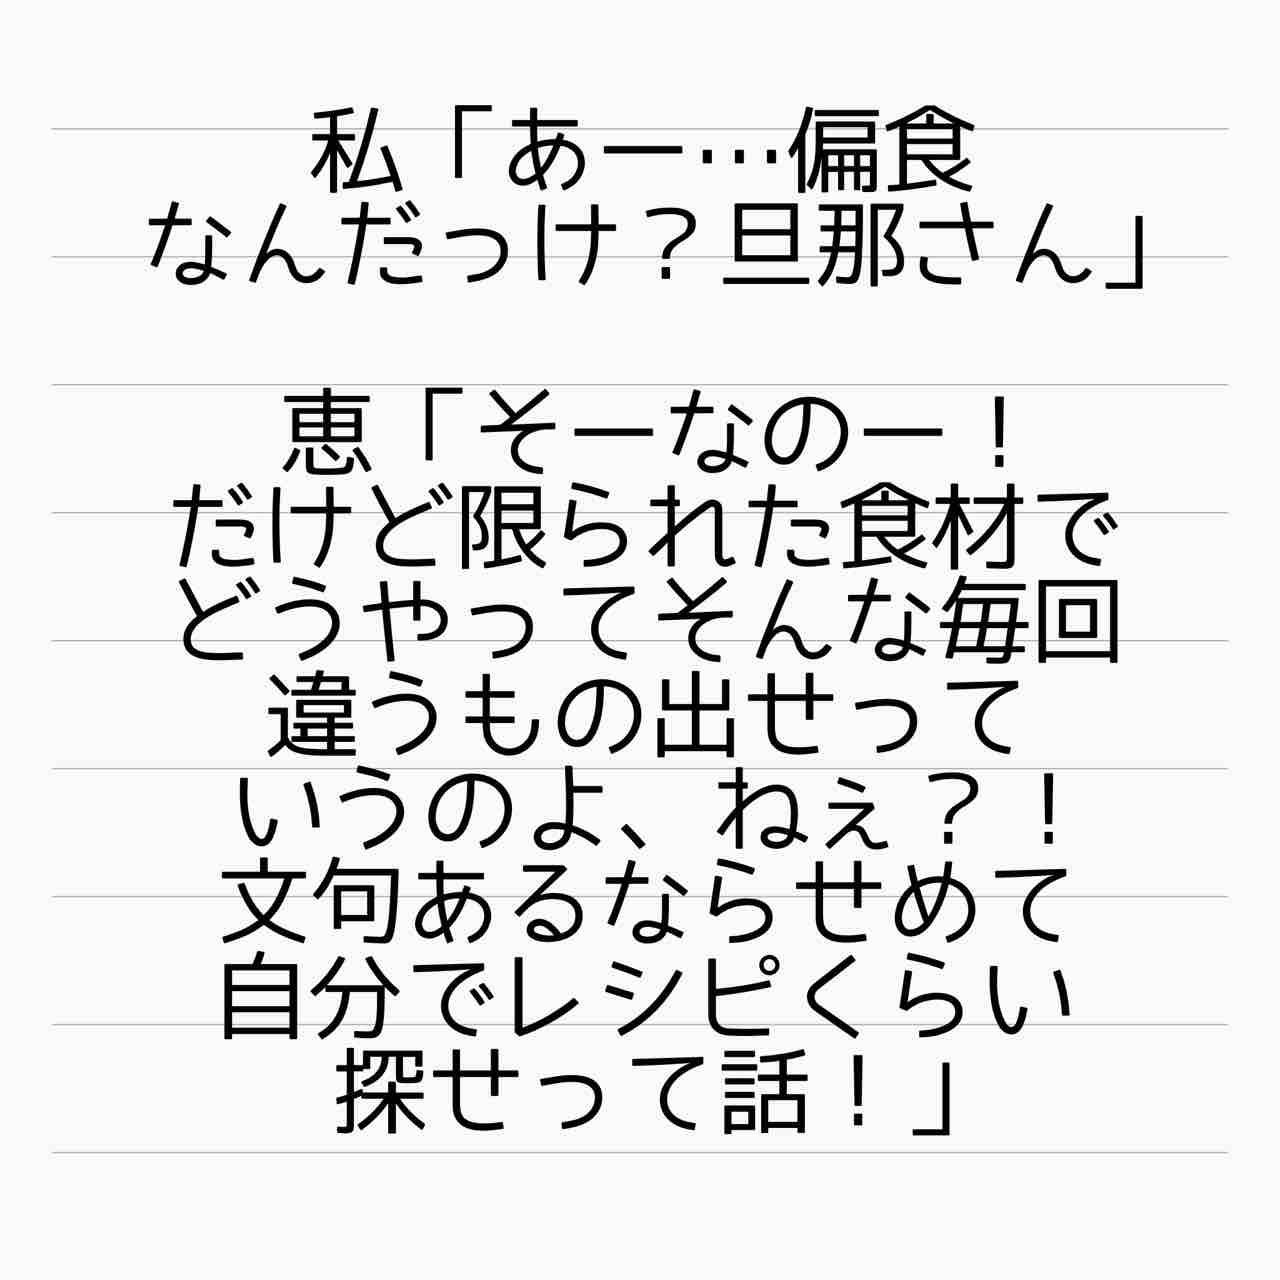 私「あー…偏食
なんだっけ？旦那さん」
恵「そーなのー！
だけど限られた食材で
どうやってそんな毎回
違うもの出せって
いうのよ、ねぇ？！
文句あるならせめて
自分でレシピくらい
探せって話！」